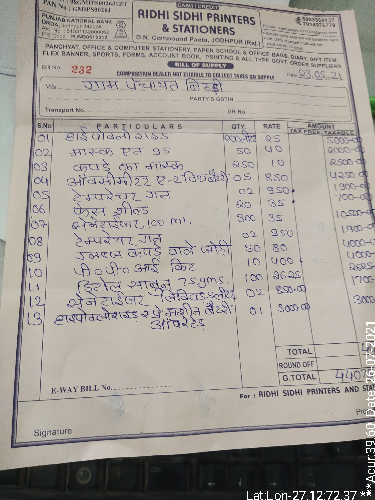 CASH / CREDIT
RIDHI SIDHI PRINTERS
& STATIONERS
D.N. Compound Paota, JODHPUR (Raj.)
PUNJAB NATIONAL BANK
PANCHYAT, OFFICE & COMPUTER STATIONERY, PAPER SCHOOL & OFFICE BAGS, DIARY, GIFT ITEM
FLEX BANNER, SPORTS, FORMS, ACCOUNT BOOK, PRINTING & ALL TYPE GOVT. ORDER SUPPLIERS
BILL OF SUPPLY
Bill No. 232
COMPOSITION DEALER NOT ELIGIBLE TO COLLECT TAXES ON SUPPLY
Date 23.05.21
M/s ग्राम पंचायत
PARTY'S GSTIN
Transport No. GR No.
S.No. PARTICULARS QTY. RATE AMOUNT
TAX FREE TAXABLE
01 25 5000-00
02 मास्क एन 95 50 40 2000-00
03 कपड़े का मास्क 250 10 2500-00
04 05 850 4250-00
05 टेम्परेचर गन 02 950 1900-00
06 फेस शील्ड 20 35 700-00
07 सेनेटाईजर 100 ml. 300 35 10500-00
08 टेम्परेचर गन 02 950 1900-00
09 कपड़े वाले 50 80 4000-00
10 पी०पी०आई किट 10 400 4000-00
11 डिटोल साबुन 75 gms. 100 26.25 2625-
12 सेनेटाईजर 02 850-00 1700-
13 01 3000-00 3000
TOTAL
ROUND OFF
G.TOTAL
E-WAY BILL No.
For : RIDHI SIDHI PRINTERS AND
Signature
Lat:Lon-27.12:72.37
***Acur:39.60 Date:16.07.2021